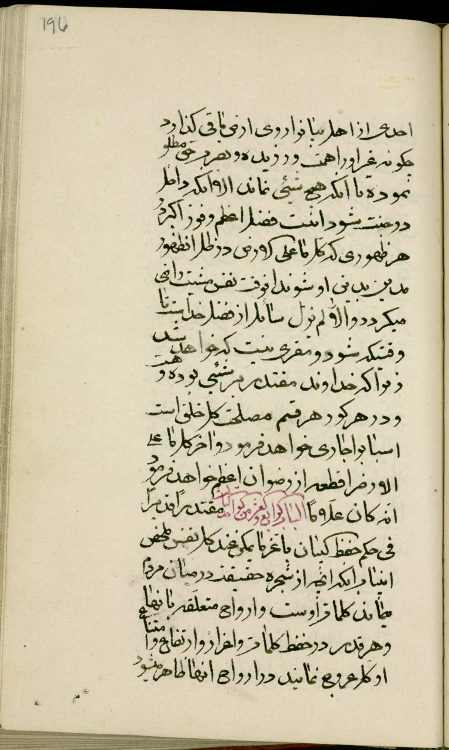 196
احدی از اهل بیان را روی ارض باقی گذارد
چگونه غیر او را همت ورزیده و بهر مرضی مظلو
نموده تا آنکه هیچ شیئی نماند الا آنکه داخل
در جنت شود اینست فضل اعظم و فوز اکبر در
هر ظهوری که کل ما علی الارض در ظل آن ظهور
مدین بدین او شوند آنوقت نفس مشیت راضی
میگردد و الا لم یزل سائل از فضل خداست تا
وقتیکه شود و مفری نیست که خواهد شد
زیرا که خداوند مقتدر بر هر شیئی بوده و هست
و در هر کور هر قسم مصلحت کل خلق است
اسباب را جاری خواهد فرمود و آخر کل ما علی
الارض را قطعه از رضوان اعظم خواهد فرمود
انه کان علاما مقتدرا قدیرا
فی حکم حفظ کتبان باعز ما یمکن عند کل نفس ملخص
این باب آنکه آنچه از شجره حقیقت در میان مردم
میماند کلمات اوست و ارواح متعلقه بانها
و هر قدر در حفظ کلمات و اعزاز و ارتفاع و امتناع
او کل عروج نمایند در ارواح انها ظاهر میشود